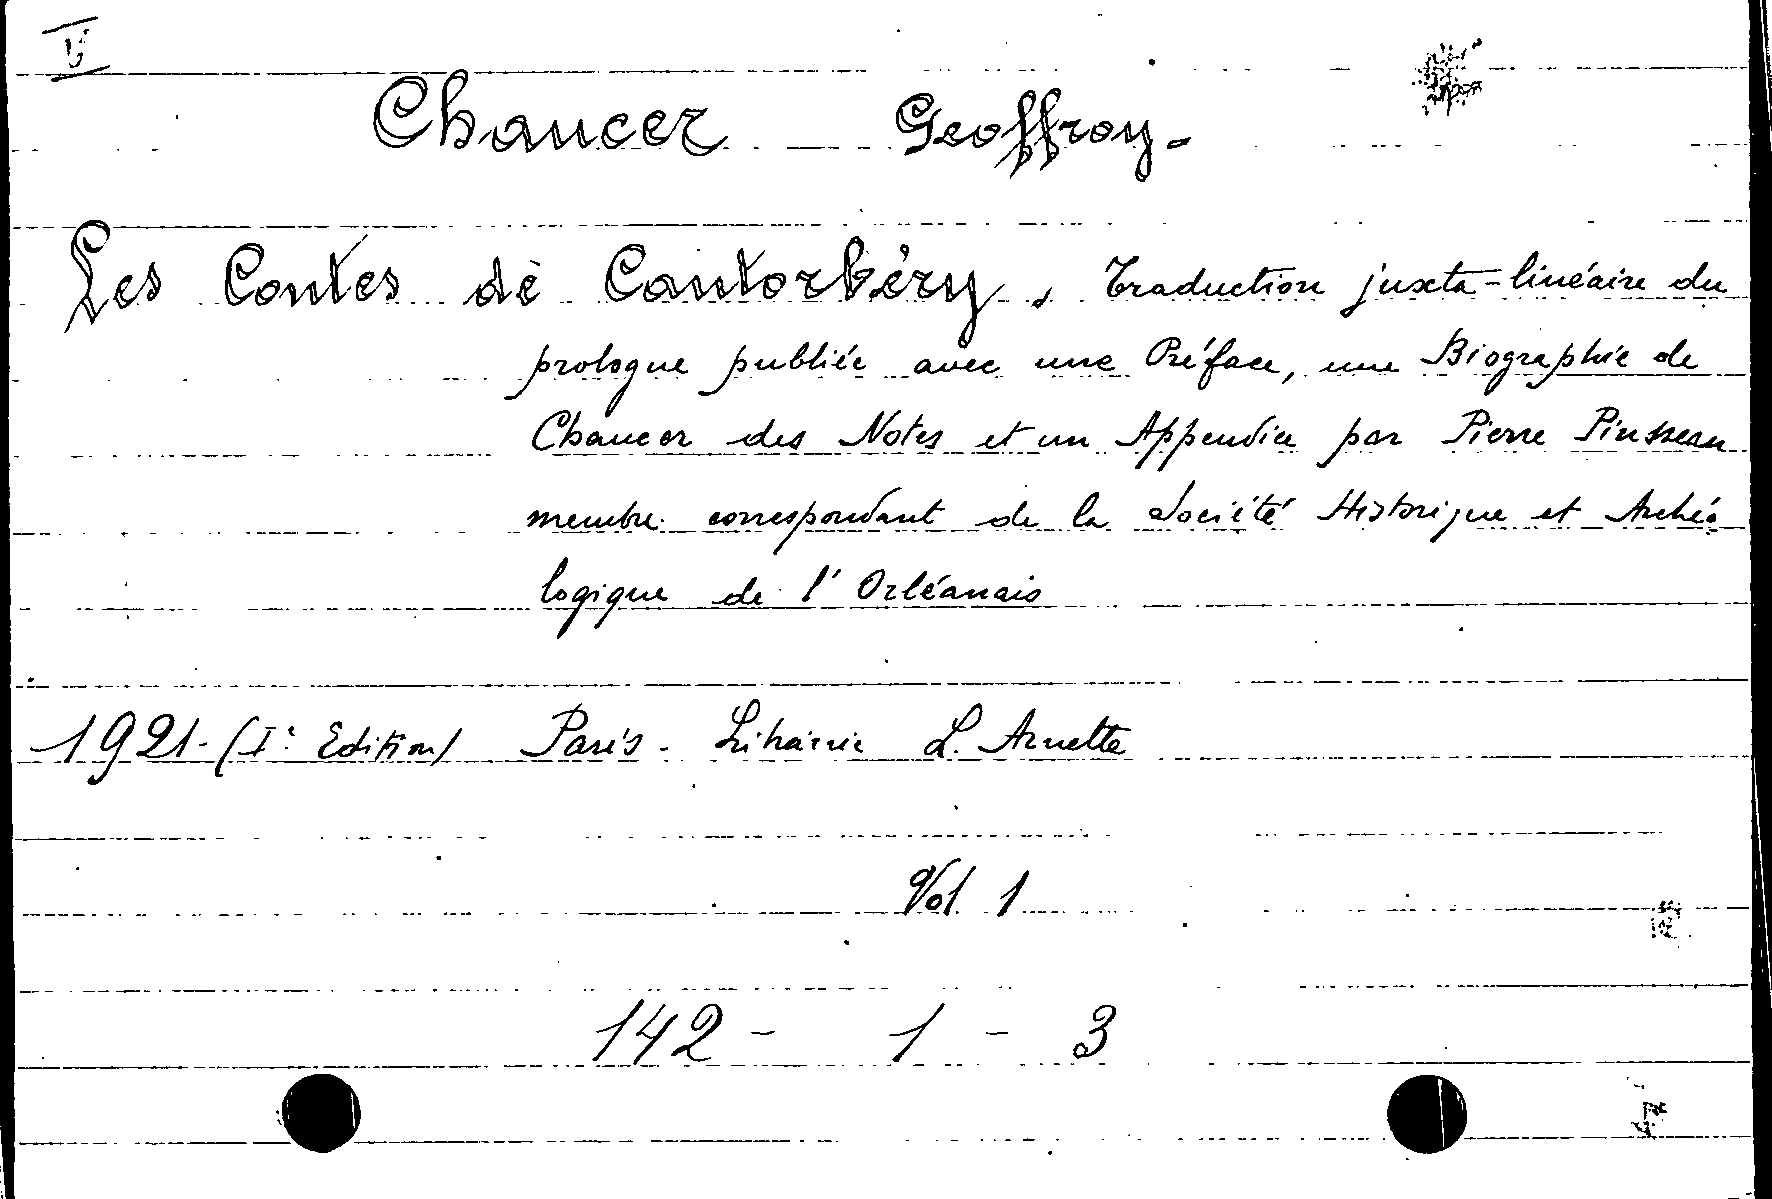 V
Chaucer Geoffroy-
Les Contes de Cantorbéry, Traduction juxta-linéaire du
prologue publiée avec une Préface, une Biographie de
Chaucer des Notes et un Appendice par Pierre Pinsseau
membre correspondant de la Société Historique et Archéo
logique de l'Orléanais
1921-(Ie Edition) Paris. Librairie L. Arnette
Vol 1
142 - 1 - 3